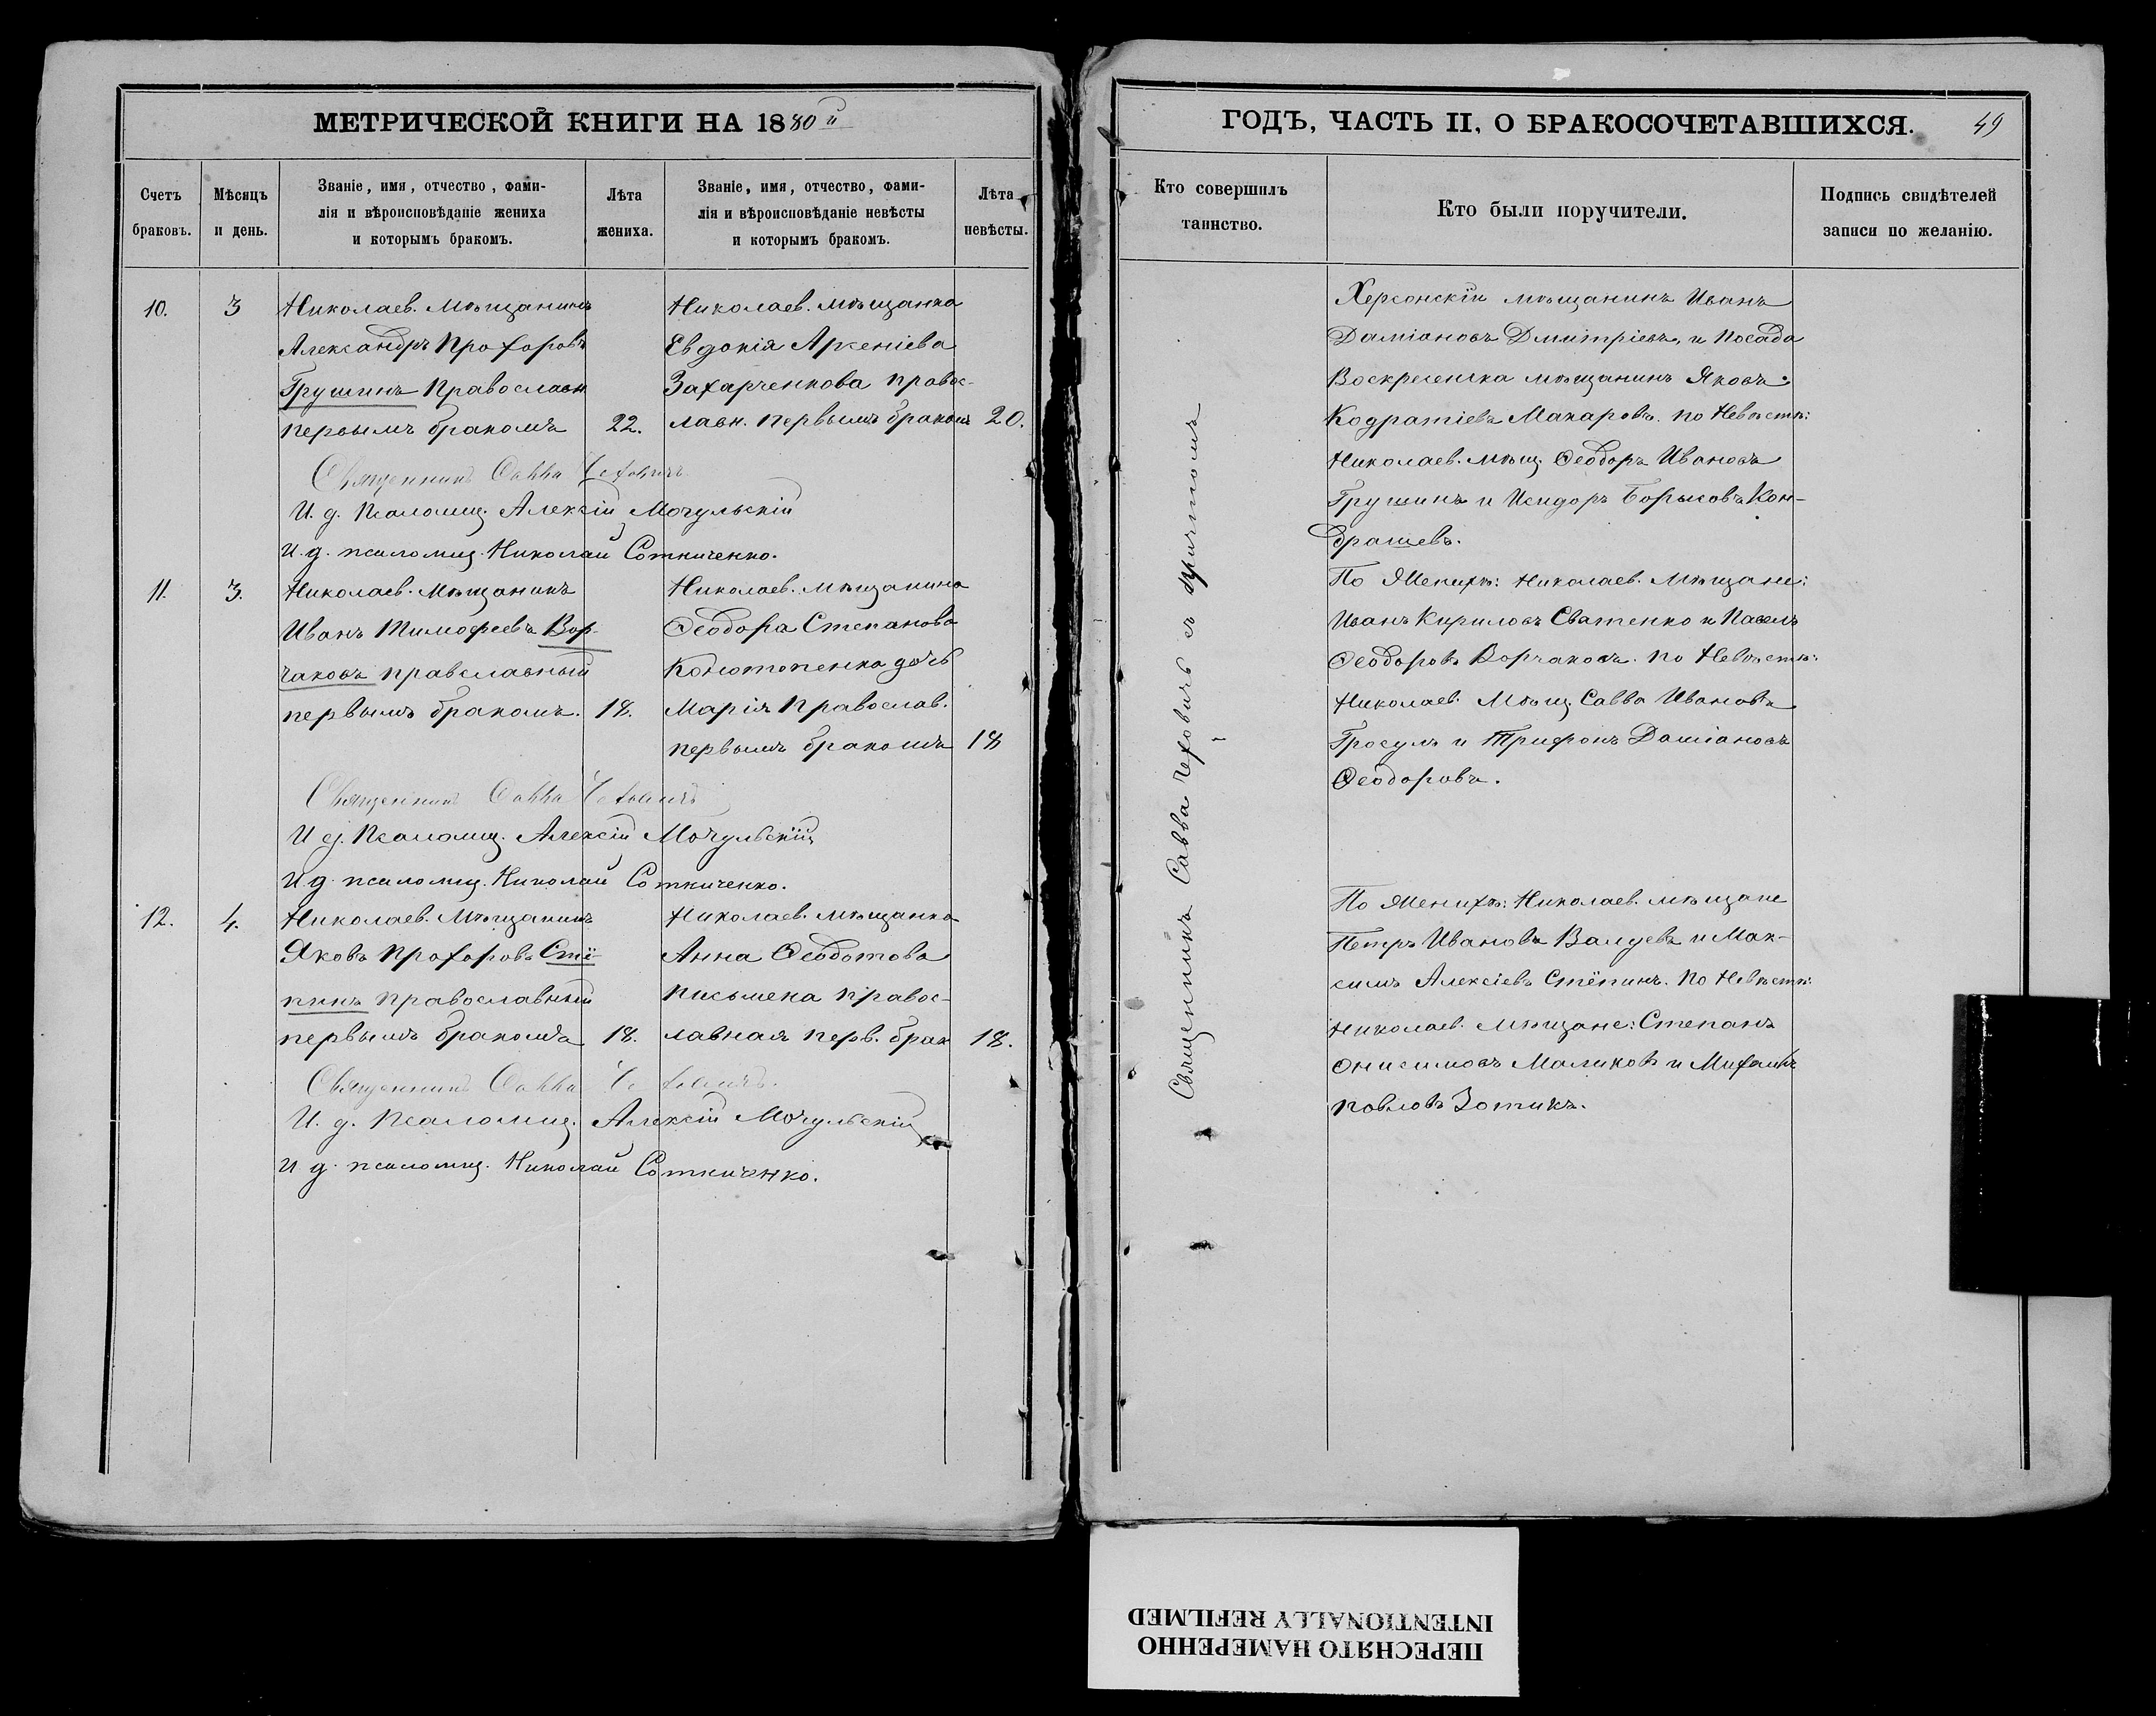 МЕТРИЧЕСКОЙ КНИГИ НА 1880й
Счетъ браковъ.
Мѣсяцъ и день.
Званіе, имя, отчество, фами-
лія и вѣроисповѣданіе жениха
и которымъ бракомъ.
Лѣта жениха.
Званіе, имя, отчество, фами-
лія и вѣроисповѣданіе невѣсты
и которымъ бракомъ.
Лѣта невѣсты.
10.
3
Николаев. Мѣщанинъ
Александръ Прохоровъ
Грушинъ Православн
первымъ бракомъ
22.
Николаев. мѣщанка
Евдокія Арсеніева
Захарченкова правос-
лавн. первымъ бракомъ
20.
Священникъ Савва Чеховичъ
И. д. Псаломщ. Алексій Мочульскій
И. д. псаломщ. Николай Соткиченко.
11.
3.
Николаев. Мѣщанинъ
Иванъ Тимофеевъ Вор-
чаковъ православный
первымъ бракомъ.
18.
Николаев. мѣщанина
Ѳеодора Степанова
Конотопенка дочь
Марія Православ.
первымъ бракомъ
18
Священникъ Савва Чеховичъ
И д. Псаломщ. Алексій Мочульскій
И д. псаломщ. Николай Соткиченко.
12.
4.
Николаев. Мѣщанинъ
Яковъ Прохоровъ Стё-
пинъ православный
первымъ бракомъ
18.
Николаев. мѣщанка
Анна Ѳеодотова
Письмена правос-
лавная перв. брак
18.
Священникъ Савва Чеховичъ.
И. д. Псаломщ. Алексій Мочульскій
И д. псаломщ. Николай Соткиченко.
ГОДЪ, ЧАСТЬ II, О БРАКОСОЧЕТАВШИХСЯ.
49
Кто совершилъ
таинство.
Кто были поручители.
Подпись свидѣтелей
записи по желанію.
Священникъ Савва Чеховичъ съ причтомъ
Херсонскій мѣщанинъ Иванъ
Даміановъ Дмитріевъ, и Посада
Воскресенска мѣщанинъ Яковъ
Кодратіевъ Макаровъ. по Невѣстѣ:
Николаев. мѣщ. Ѳеодоръ Ивановъ
Грушинъ и Исидоръ Борисовъ Кон-
драшевъ.
По Женихѣ: Николаев. Мѣщане:
Иванъ Кириловъ Сватенко и Павелъ
Ѳеодоровъ Ворчаковъ. по Невѣстѣ:
Николаев. Мѣщ. Савва Ивановъ
Гросулъ и Трифонъ Даміановъ
Ѳеодоровъ.
По Женихѣ: Николаев. мѣщане
Петръ Ивановъ Валуевъ и Мак-
симъ Алексіевъ Стёпинъ. По Невѣстѣ:
Николаев. Мѣщане: Степанъ
Онисимовъ Маликовъ и Михаилъ
Павловъ Зотикъ.
ПЕРЕСНЯТО НАМЕРЕННО
INTENTIONALLY REFILMED